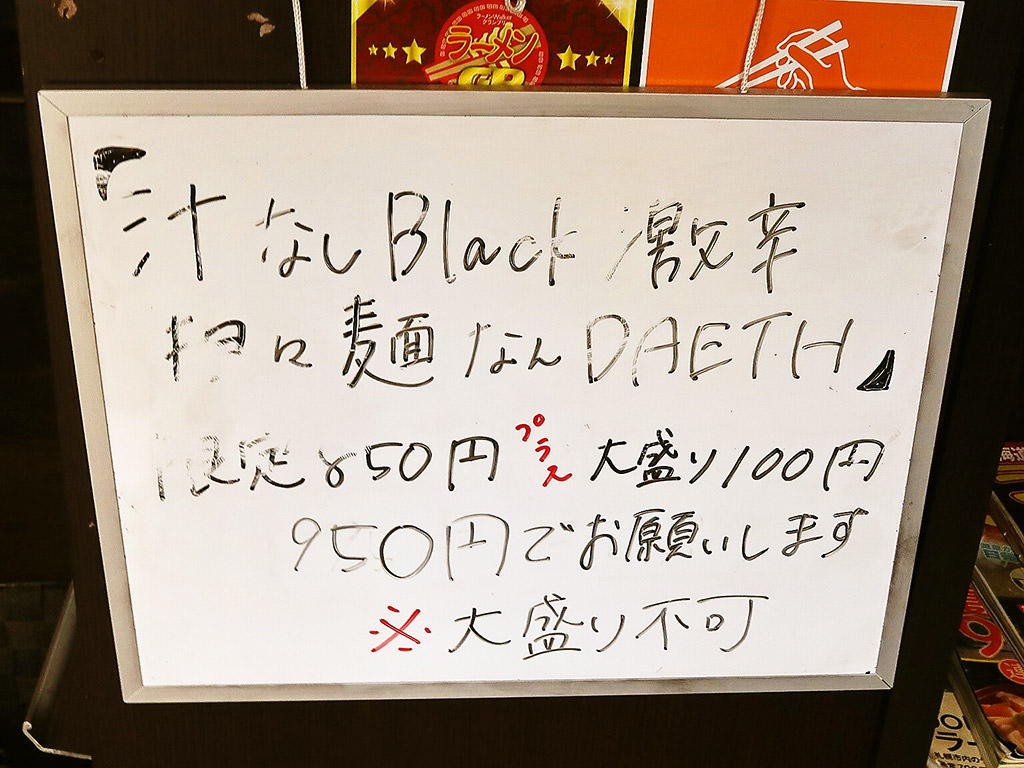 ラーメンWalker
グランプリ
ラーメン
GP
「汁なしBlack激辛
担々麺なんDAETH」
限定850円プラス大盛り100円
950円でお願いします
※大盛り不可